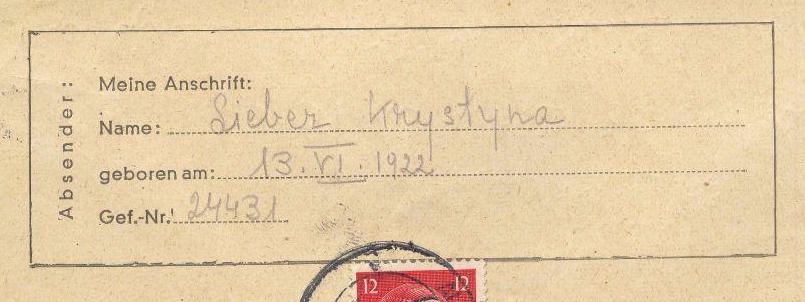 Absender:
Meine Anschrift:
Name: Sieber Krystyna
geboren am: 13. VI. 1922
Gef.-Nr. 24431
12 12